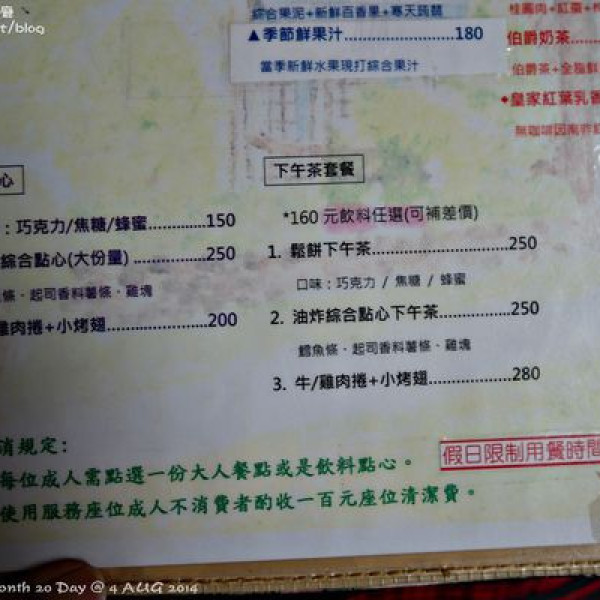 et/blog
綜合果泥+新鮮百香果+寒天蒟蒻
▲季節鮮果汁..................180
當季新鮮水果現打綜合果汁
桂圓肉+紅棗+
伯爵奶茶
伯爵茶+全脂鮮
◆皇家紅葉乳香
無咖啡因南非紅
心
:巧克力/焦糖/蜂蜜..............150
綜合點心(大份量).............250
條、起司香料薯條、雞塊
雞肉捲+小烤翅.................200
下午茶套餐
*160 元飲料任選(可補差價)
1. 鬆餅下午茶......................250
口味:巧克力 / 焦糖 / 蜂蜜
2. 油炸綜合點心下午茶...........250
鱈魚條、起司香料薯條、雞塊
3. 牛/雞肉捲+小烤翅..............280
消規定:
每位成人需點選一份大人餐點或是飲料點心。
使用服務座位成人不消費者酌收一百元座位清潔費。
假日限制用餐時間
onth 20 Day @ 4 AUG 2014